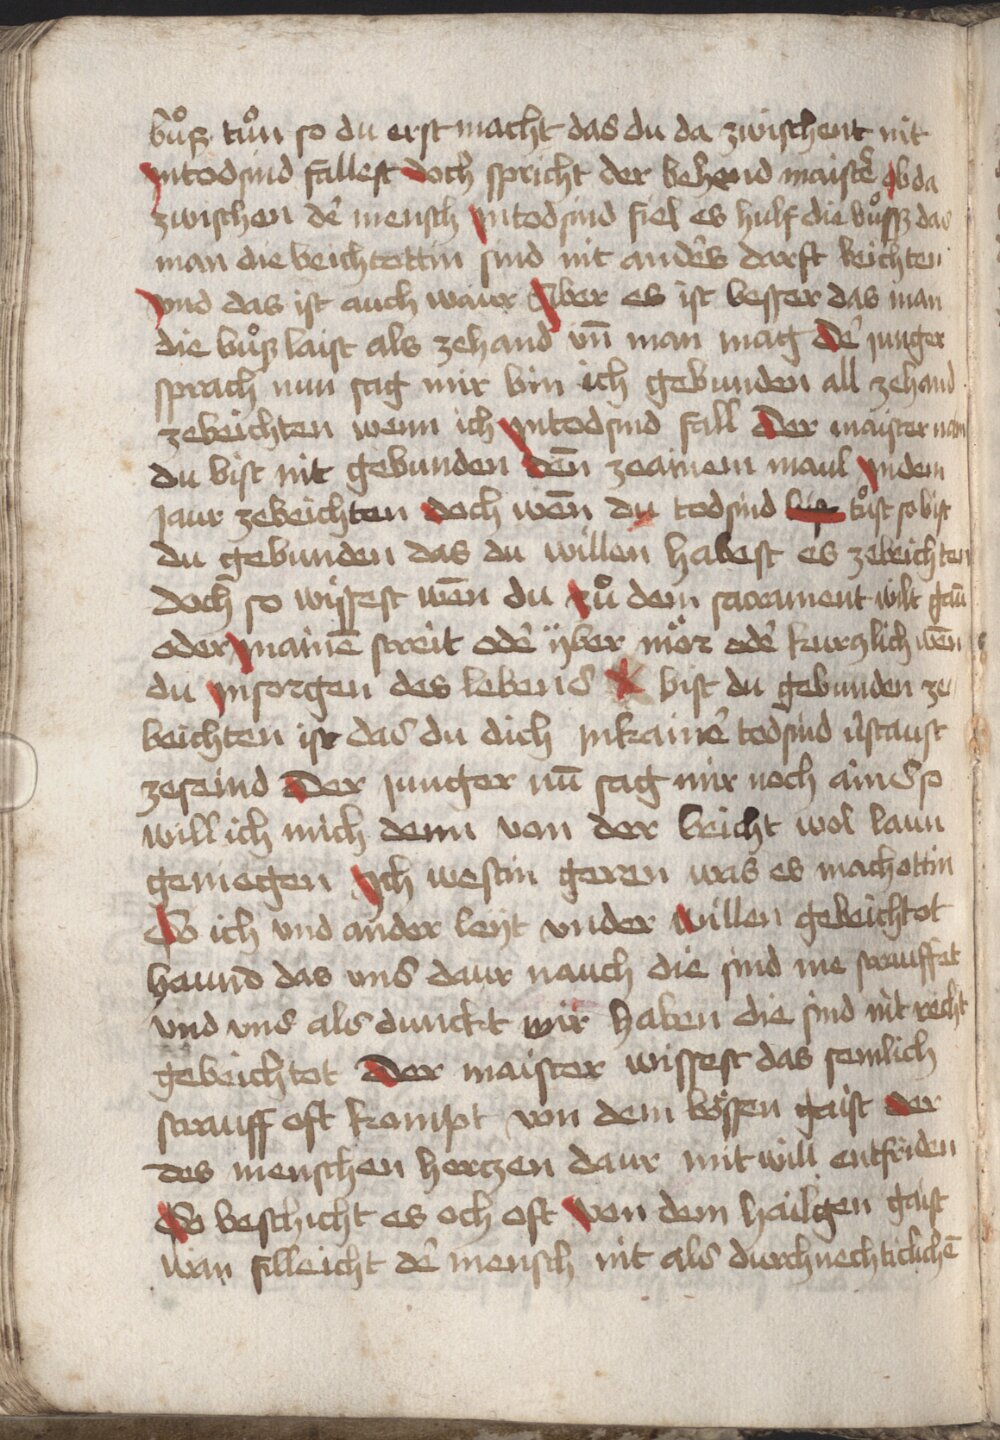 buͦß tuͦn so du erst macht das du da zwischent nit
jn todsind fallest doch spricht der behend maistẽ ob da
zwischen dẽ mensch jn todsind fiel es hulf die buͦsß das
man die beichtottin sind nit anders darft beichten
vnd das ist auch waur Aber es ist besser das man
die buͦß laist als zehand vñ man mag dẽ junger
sprach nun sag mir bin ich gebunden all zehand
zebeichten wenn ich jn todsind fall Der maister nain
du bist nit gebunden deñ zeainem maul jn dem
jaur zebeichten doch weñ du todsind tuͦst so bist
du gebunden das du willen habest es zebeichten
doch so wissest weñ du zuͦ dem sacrament wilt gaũ
oder jn ainẽ streit odẽ ÿber mör odẽ kurczlich weñ
du jn sorgen des lebens bist du gebunden ze
beichten ist das du dich jn kainẽ todsind v̾staust
zeseind Der junger nũ sag mir noch ains so
will ich mich denn von der beicht wol laun
geniegen Ich westin geren was es machottin
So ich vnd ander leyt vnder willen gebeichtot
haund das vns daur nauch die sind me strauffet
vnd vns als dunckt wir haben die sind nit recht
gebeichtot Der maister wissest das semlich
strauff oft kompt von dem bössen gaist der
des menschen herczen daur mit will entfriden
So beschicht es och oft von dem hailgen gaist
wan filleicht dẽ mensch nit als durchnechticlichẽ